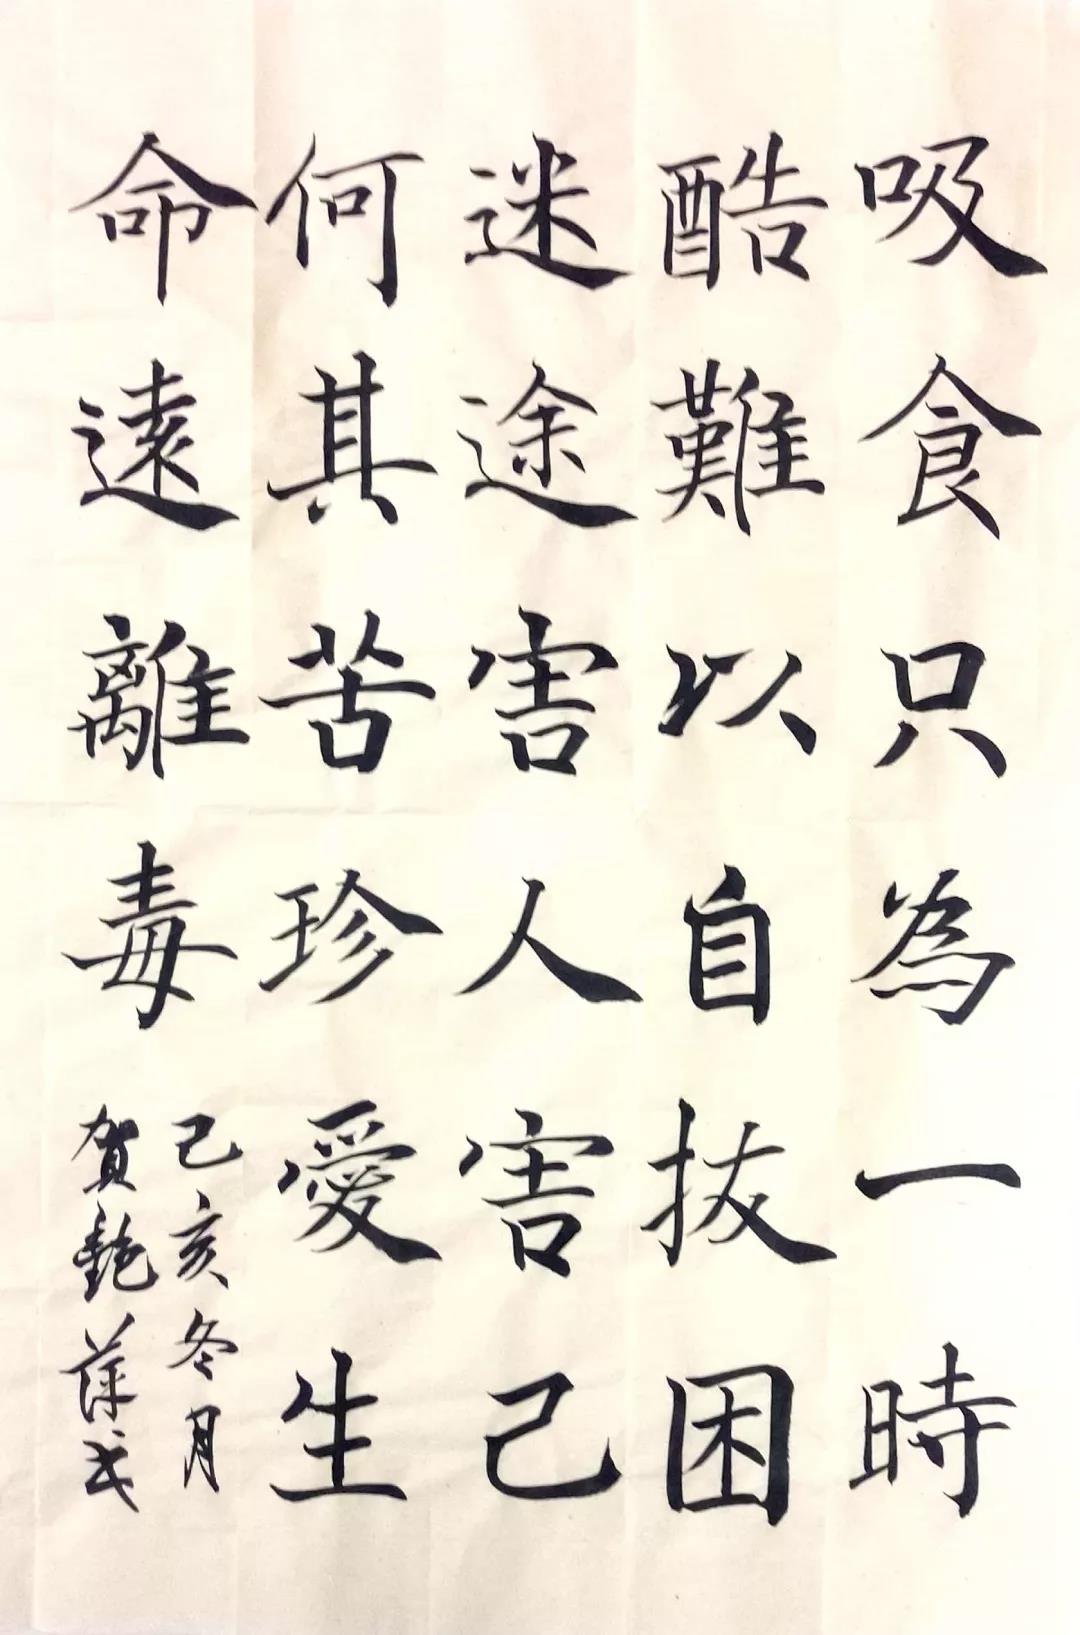 吸食只為一時
酷難以自拔困
迷途害人害己
何其苦珍愛生
命遠離毒
己亥冬月
賀艷萍書